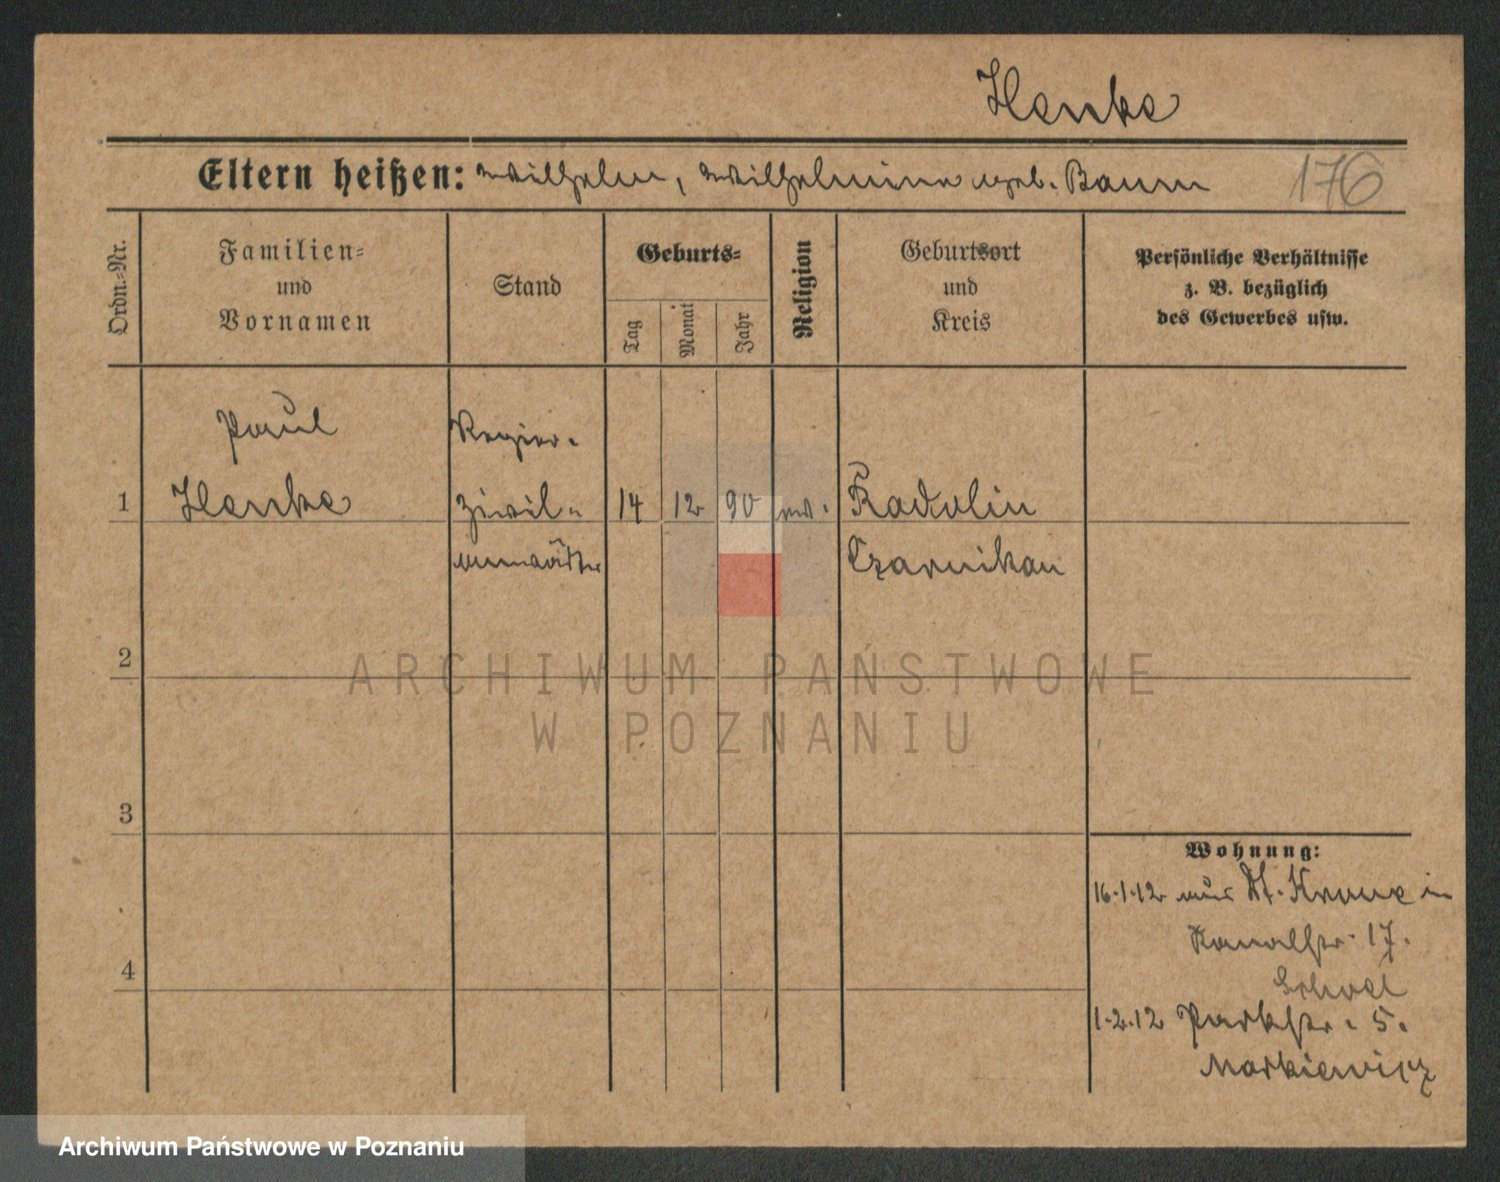 Henke
Eltern heißen: Wilhelm, Wilhelmine geb. Baum 176
Ordn.-Nr.
Familien-
und
Vornamen
Stand
Geburts-
Tag
Monat
Jahr
Religion
Geburtsort
und
Kreis
Persönliche Verhältnisse
z. B. bezüglich
des Gewerbes usw.
Paul
Regier-
1 Henke Zivil- 14 12 90 ev. Radolin
anwärter Czarnikau
2
ARCHIWUM PAŃSTWOWE
W POZNANIU
3
Wohnung:
16.1.12 aus Dt. Krone in
Kanalstr. 17.
4
1.2.12 Parkstr. 5.
Markiewicz
Archiwum Państwowe w Poznaniu